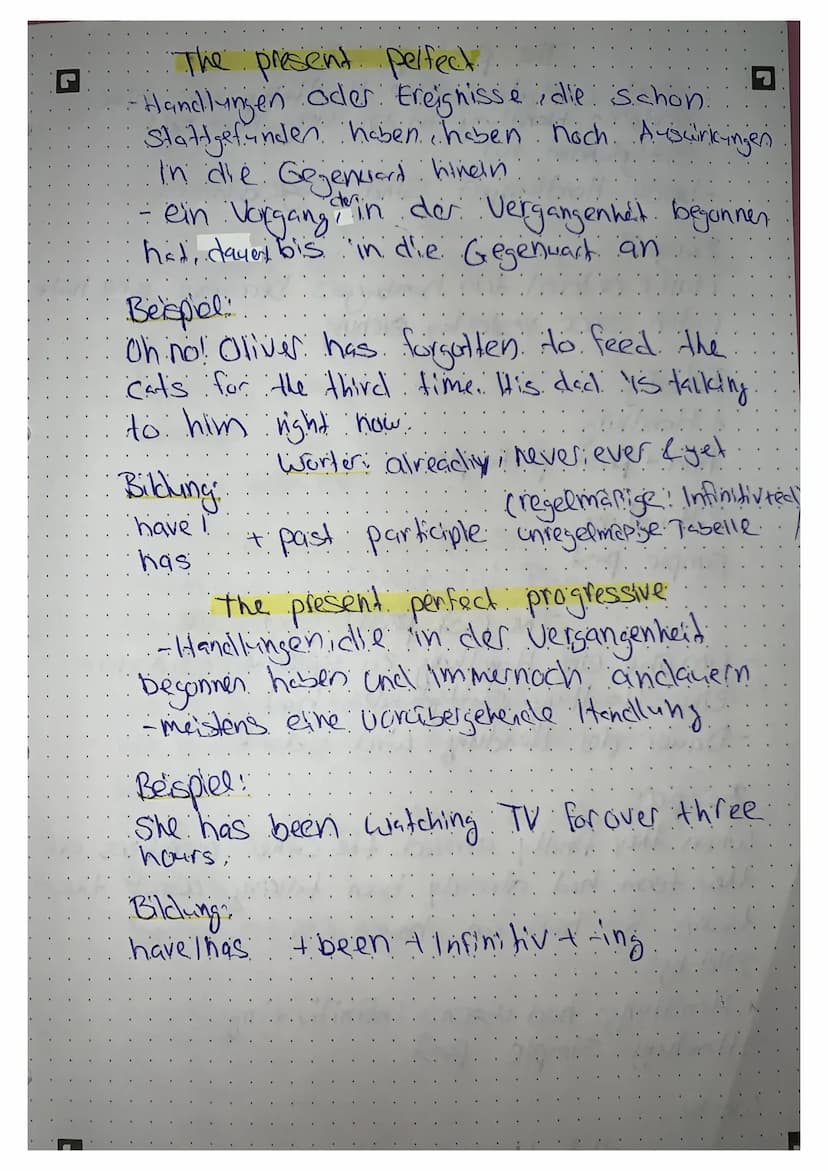 The present perfect
- Handlungen oder Ereignisse, die schon
stattgefunden haben, haben noch Auswirkungen
in die Gegenwart hinein
- ein Vorgang, der in der Vergangenheit begonnen
hat, dauert bis in die Gegenwart an
Beispiel:
Oh no! Oliver has forgotten to feed the
cats for the third time. His dad is talking
to him right now.
Wörter: already, never, ever & yet
Bildung:
(regelmäßige: Infinitiv + ed)
have / + past participle unregelmäßige Tabelle
has
The present perfect progressive
- Handlungen, die in der Vergangenheit
begonnen haben und immernoch andauern
- meistens eine vorübergehende Handlung
Beispiel:
She has been watching TV for over three
hours.
Bildung:
have/has + been + Infinitiv + -ing